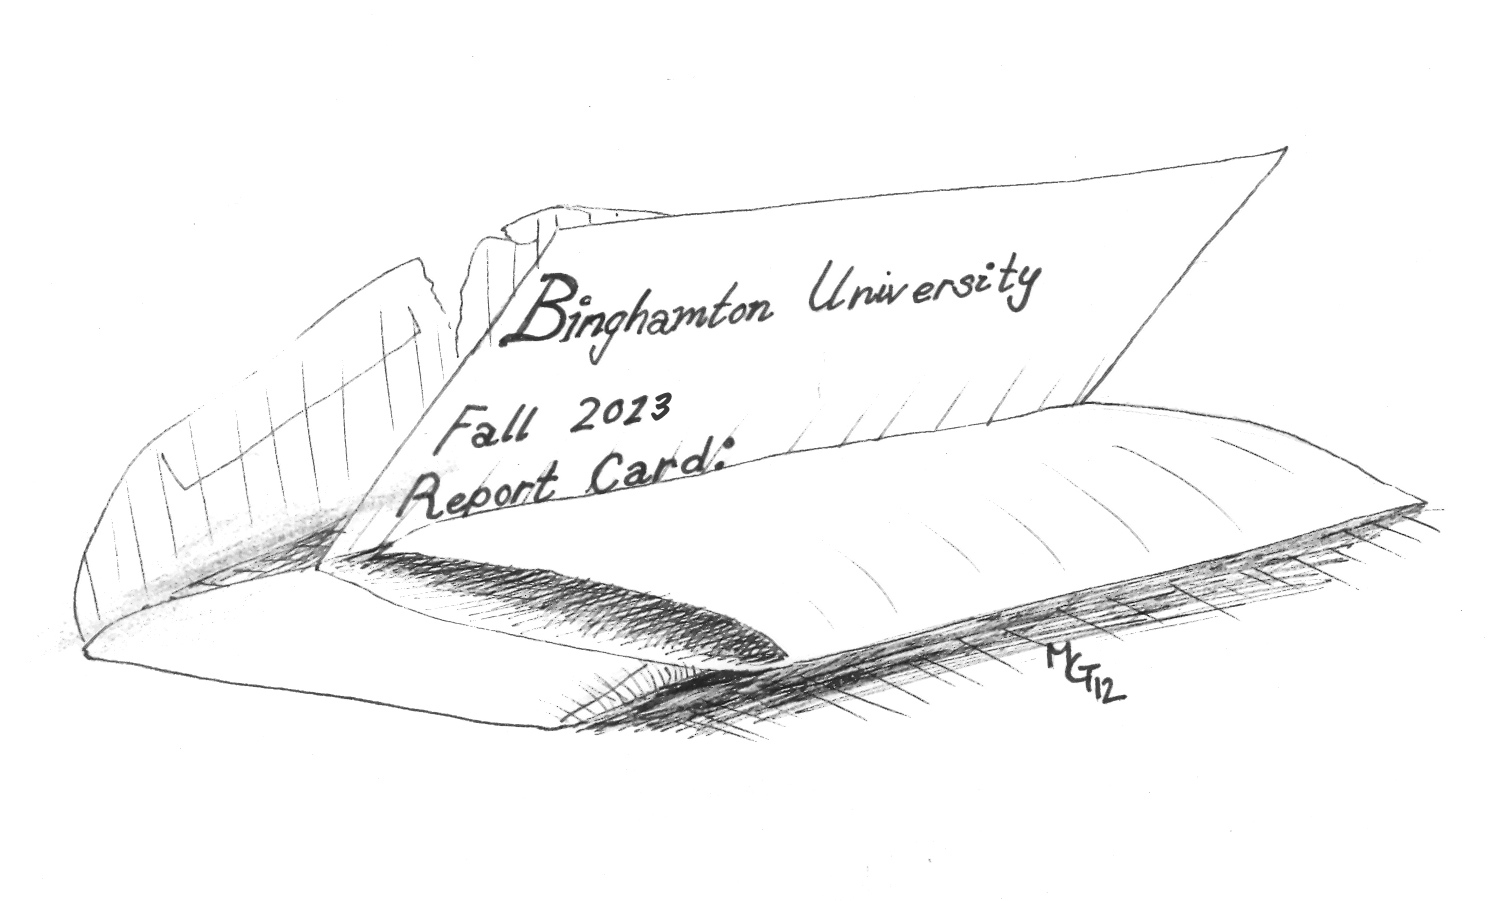 Binghamton University
Fall 2013
Report Card:
MGT12